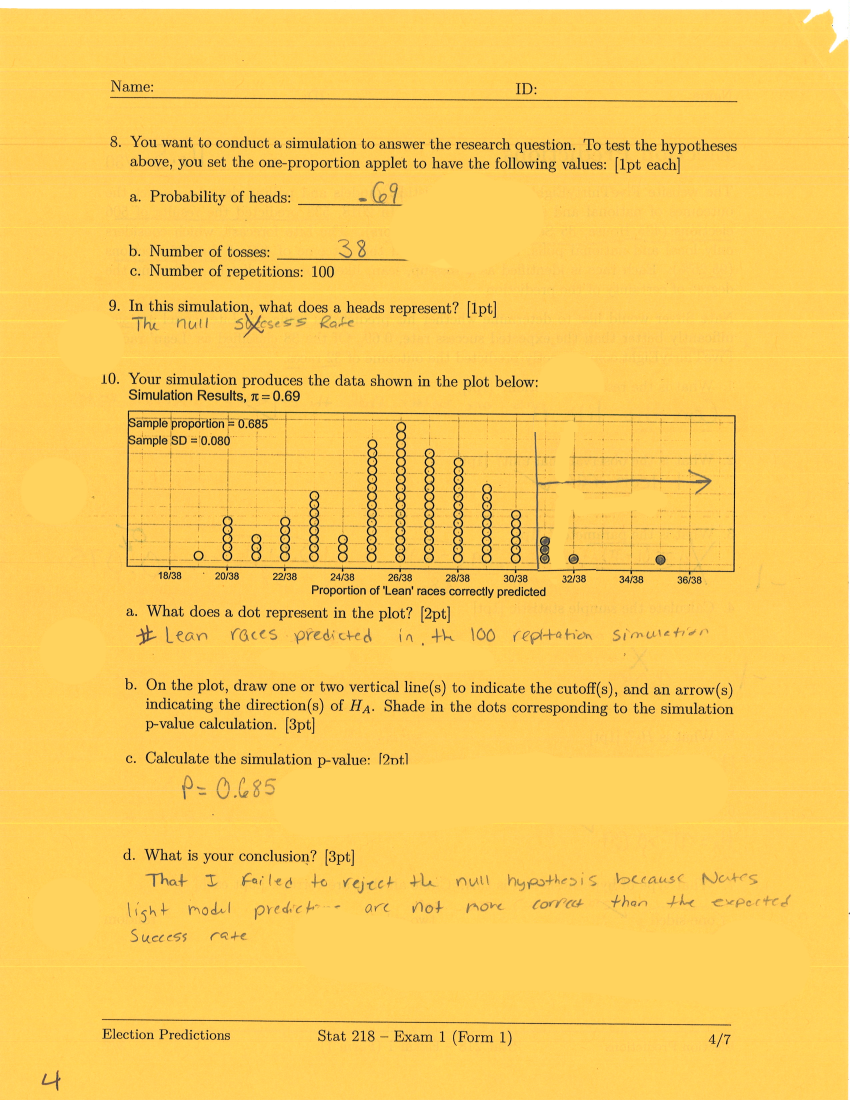 Name:
ID:
8. You want to conduct a simulation to answer the research question. To test the hypotheses
above, you set the one-proportion applet to have the following values: [1pt each]
a. Probability of heads: .69
b. Number of tosses: 38
c. Number of repetitions: 100
9. In this simulation, what does a heads represent? [1pt]
The null Rate
10. Your simulation produces the data shown in the plot below:
Simulation Results, π = 0.69
Sample proportion = 0.685
Sample SD = 0.080
18/38 20/38 22/38 24/38 26/38 28/38 30/38 32/38 34/38 36/38
Proportion of 'Lean' races correctly predicted
a. What does a dot represent in the plot? [2pt]
# Lean races predicted in the 100 simulation
b. On the plot, draw one or two vertical line(s) to indicate the cutoff(s), and an arrow(s)
indicating the direction(s) of H_A. Shade in the dots corresponding to the simulation
p-value calculation. [3pt]
c. Calculate the simulation p-value: [2pt]
P= 0.685
d. What is your conclusion? [3pt]
That I failed to reject the null hypothesis because Nates
light model predict-- are not more correct than the expected
Success rate
Election Predictions
Stat 218 – Exam 1 (Form 1)
4/7
4